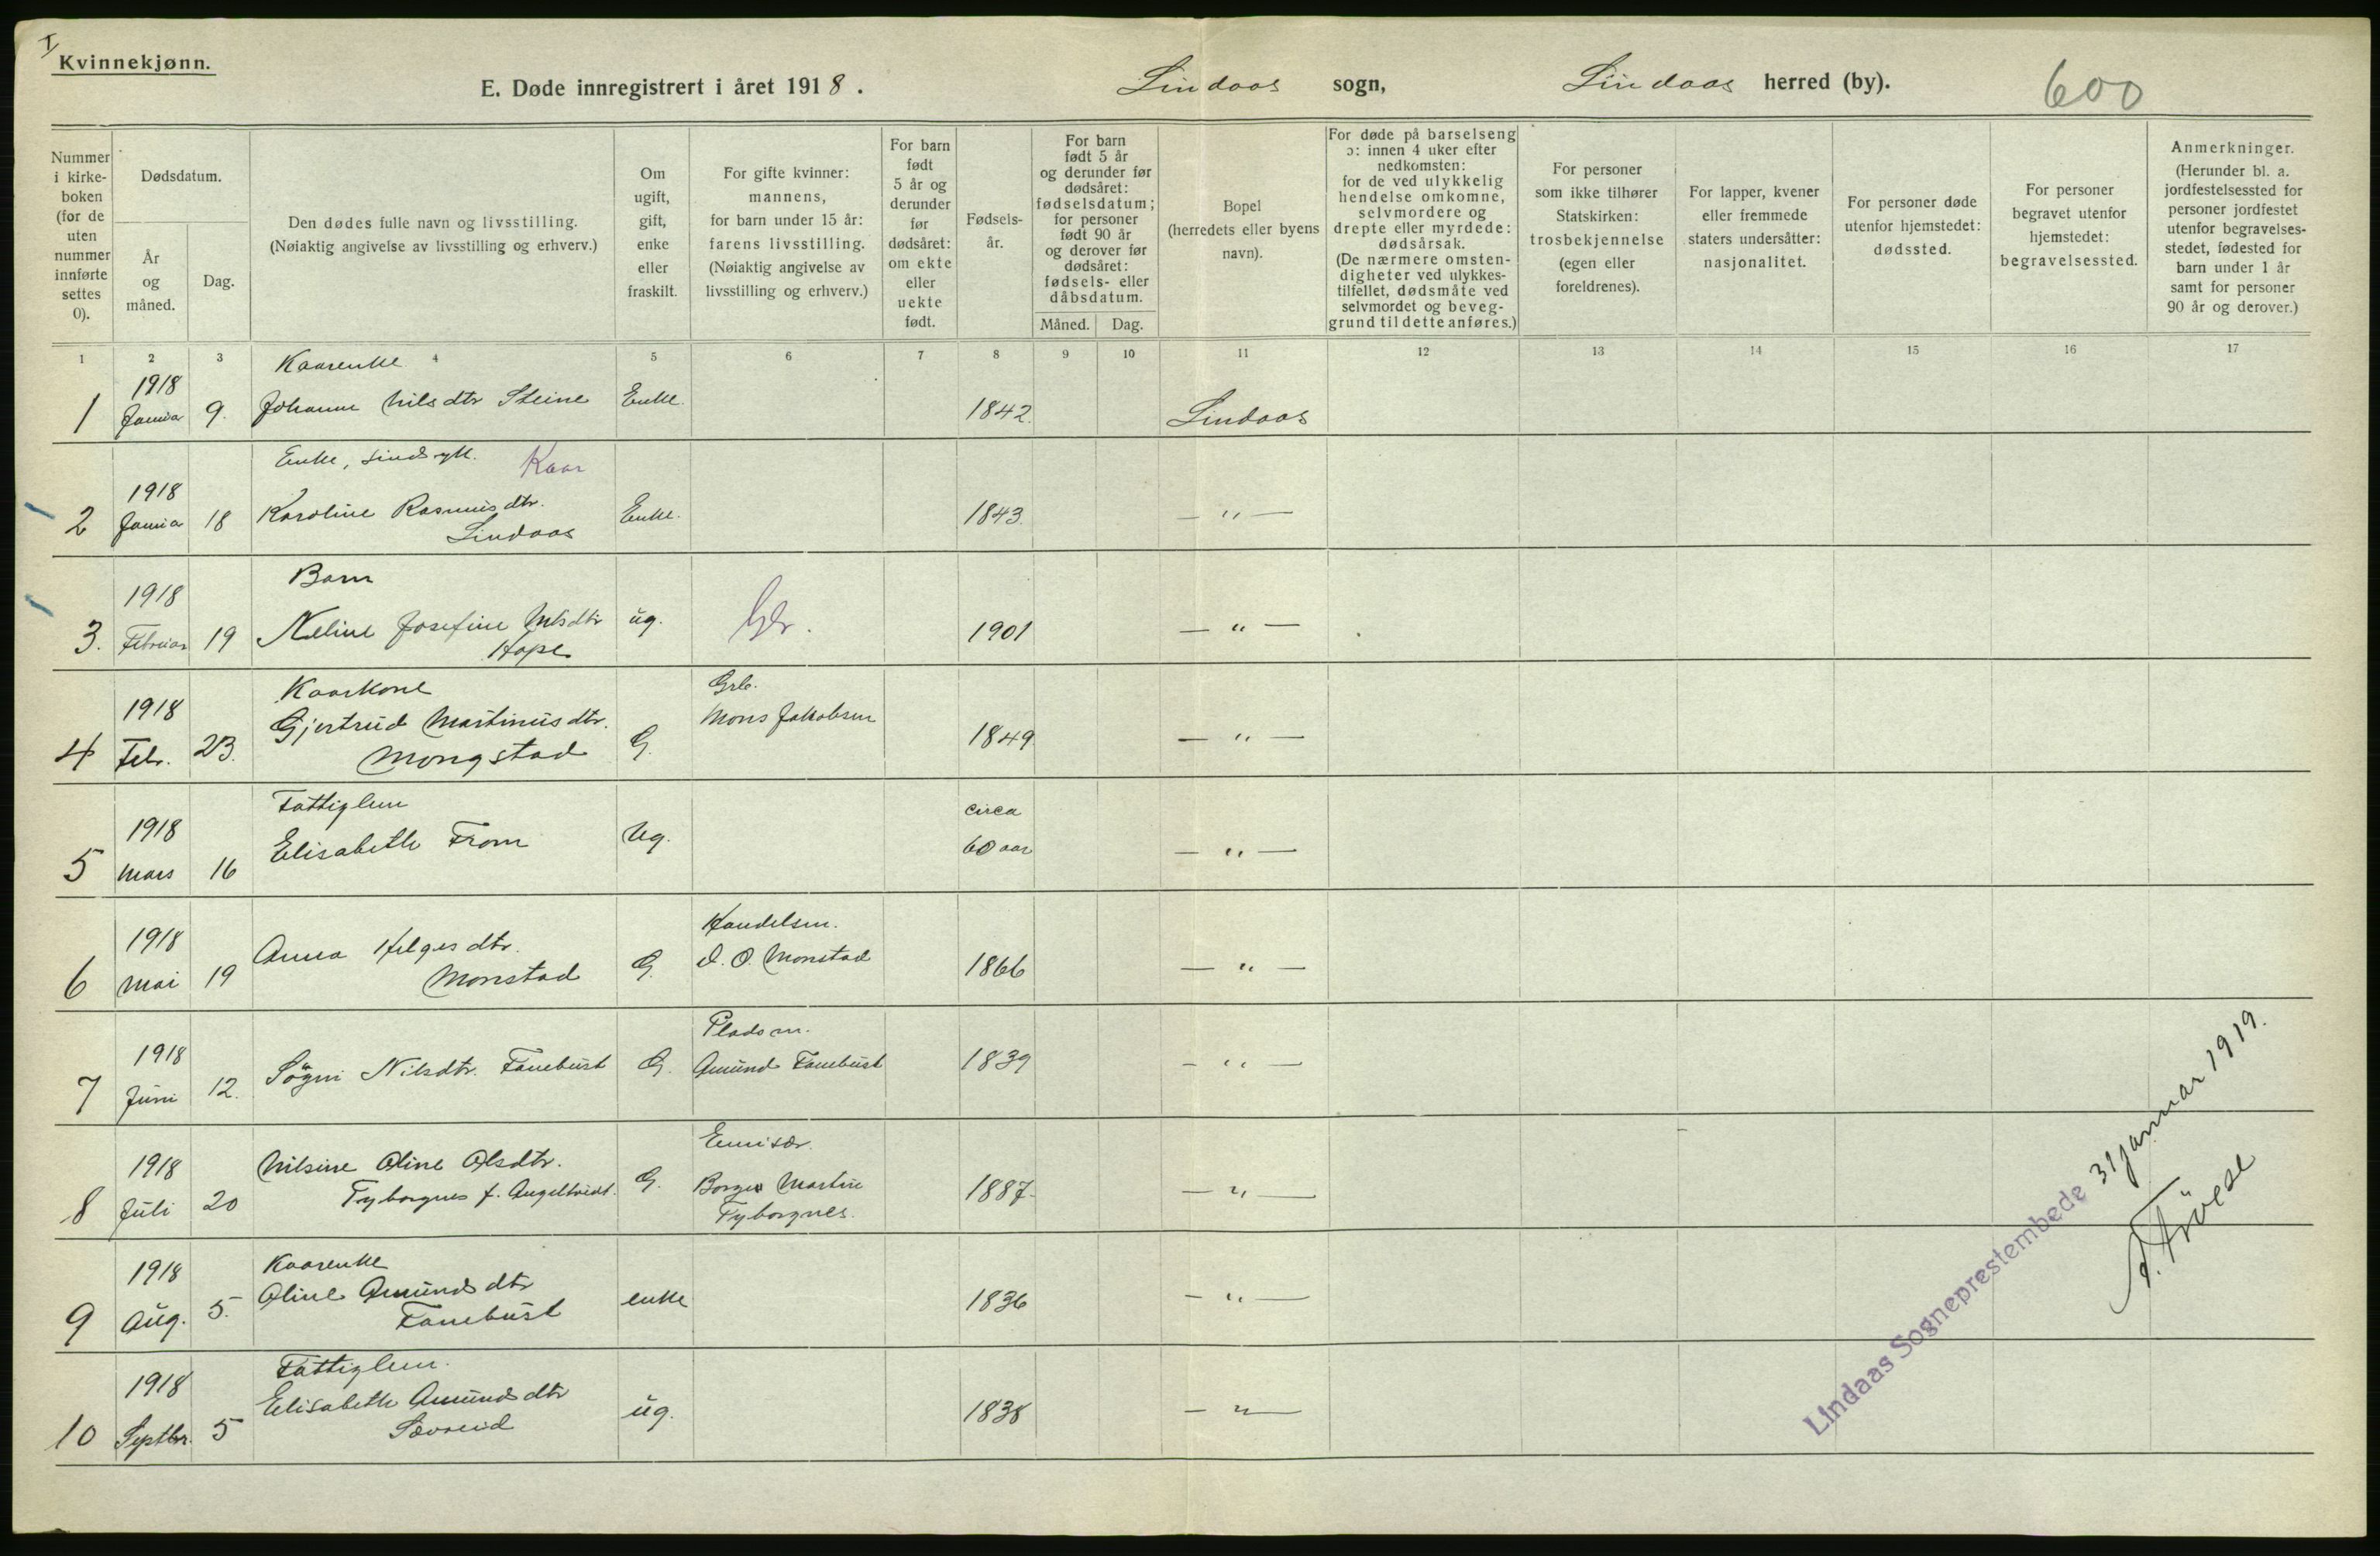 I
Kvinnekjønn.
E. Døde innregistrert i året 1918. Lindaas sogn, Lindaas herred (by). 600
Nummer i kirke-boken (for de uten nummer innførte settes 0).
Dødsdatum.
År og måned.
Dag.
Den dødes fulle navn og livsstilling.
(Nøiaktig angivelse av livsstilling og erhverv.)
Om ugift, gift, enke eller fraskilt.
For gifte kvinner: mannens, for barn under 15 år: farens livsstilling. (Nøiaktig angivelse av livsstilling og erhverv.)
For barn født 5 år og derunder før dødsåret: om ekte eller uekte født.
Fødsels-år.
For barn født 5 år og derunder før dødsåret: fødselsdatum; for personer født 90 år og derover før dødsåret: fødsels- eller dåbsdatum.
Måned. Dag.
Bopel (herredets eller byens navn).
For døde på barselseng ɔ: innen 4 uker efter nedkomsten: for de ved ulykkelig hendelse omkomne, selvmordere og drepte eller myrdede: dødsårsak. (De nærmere omsten-digheter ved ulykkes-tilfellet, dødsmåte ved selvmordet og beveg-grund til dette anføres.)
For personer som ikke tilhører Statskirken: trosbekjennelse (egen eller foreldrenes).
For lapper, kvener eller fremmede staters undersåtter: nasjonalitet.
For personer døde utenfor hjemstedet: dødssted.
For personer begravet utenfor hjemstedet: begravelsessted.
Anmerkninger. (Herunder bl. a. jordfestelsessted for personer jordfestet utenfor begravelses-stedet, fødested for barn under 1 år samt for personer 90 år og derover.)
1 2 3 4 5 6 7 8 9 10 11 12 13 14 15 16 17
Kaarenke
1918
1 Janua 9. Johanne Nilsdtr Steine Enke. 1842. Lindaas
Enke, sindsyk. Kaar
1918
2 Janua 18 Karoline Rasmusdtr. Enke. 1843. — " —
Lindaas
Barn
1918
3. Februar 19 Neline Josefine Nilsdtr ug. 1901 — " —
Hope
Kaarkone Grb.
1918 Gjertrud Martinusdtr. Mons Jakobsen
4 Feb. 23. Mongstad G. 1849 — " —
Fattiglem circa
1918 Elisabeth From Ug. 60 aar
5 Mars 16 — " —
Handelsm.
1918 Anna Helgesdtr. O. Monstad
6 Mai 19 Monstad G. 1866 — " —
Pladsm.
1918
7 Juni 12. Søgni Nilsdtr. Fanebust G. Amund Fanebust 1839 — " —
Emisær.
1918 Nilsine Oline Olsdtr.
8 Juli 20 Fyborgnes f. Angeltveidt. G. Martin 1887. — " —
Fyborgnes.
Kaarenke
1918 Oline Amundsdtr
9 Aug. 5. Fanebust enke 1836 — " —
Fattiglem.
1918 Elisabeth Amundsdtr
10 Septbr. 5 Sævreid ug. 1838 — " —
Lindaas Sogneprestembede 31 januar 1919.